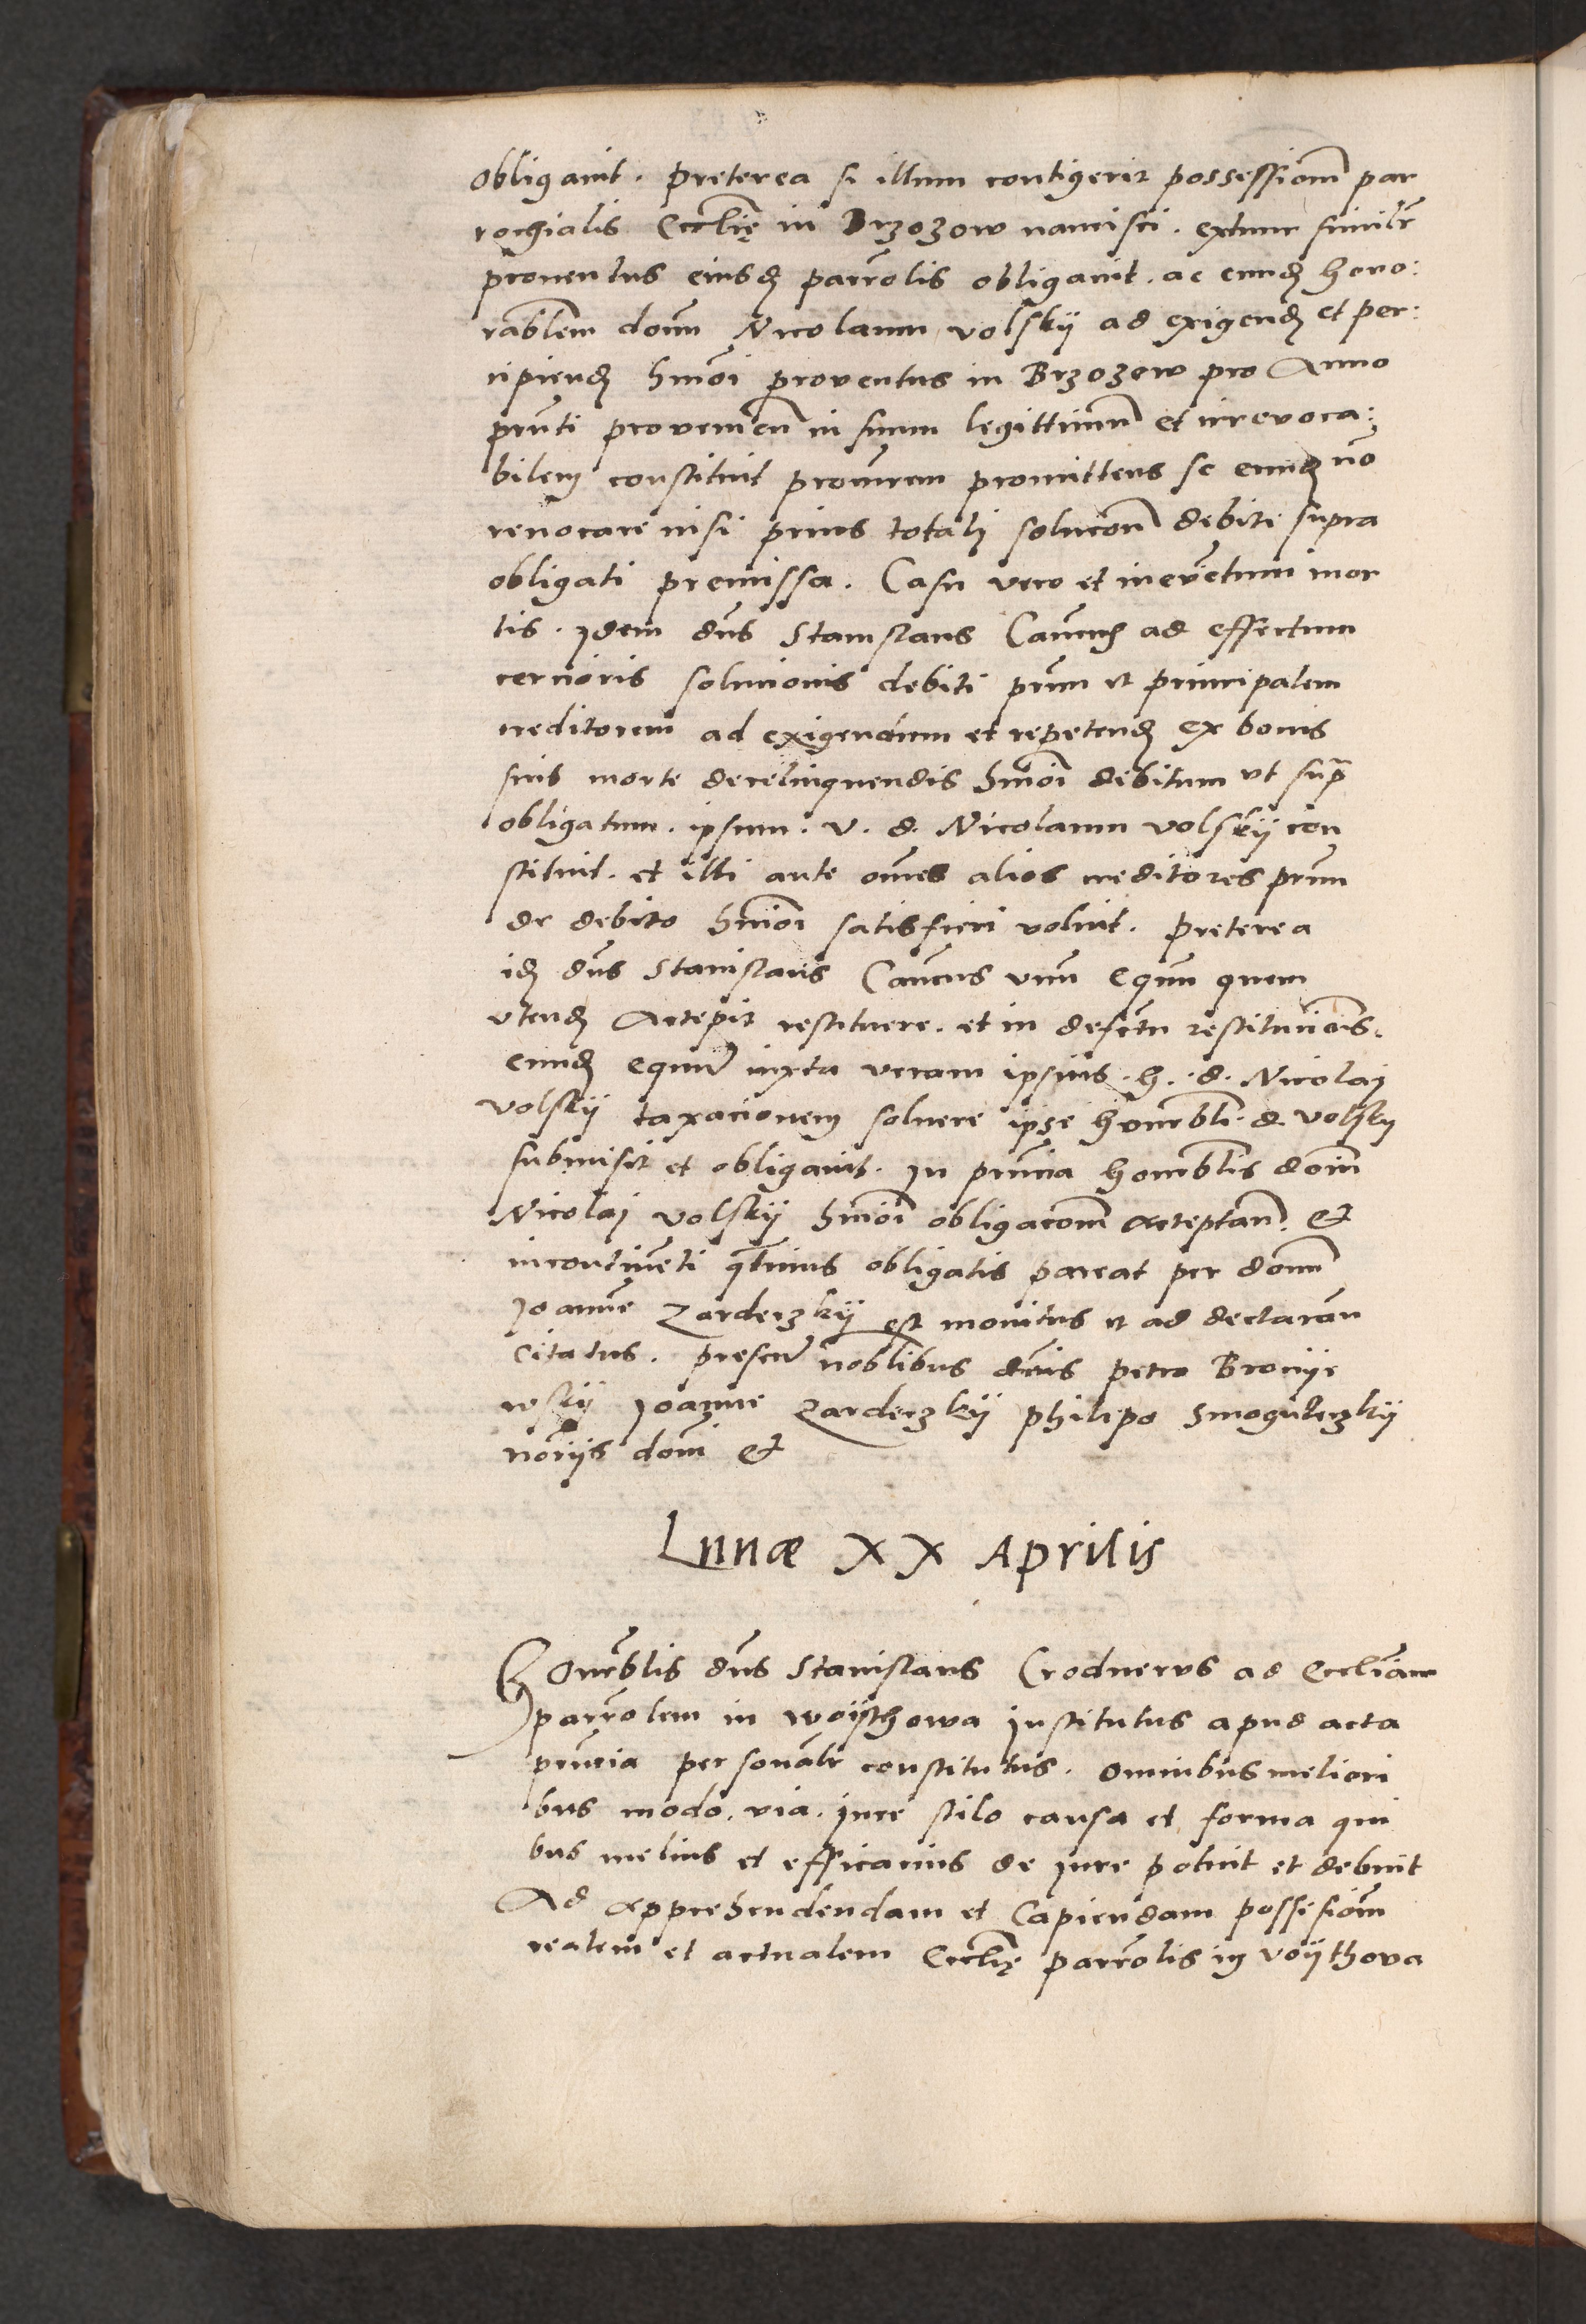 obligauit. preterea si illum contigerit possessiom̃ par
rochialis Ecctlię in Brzozow nancisci. extunc similr̃
prouentus eiusdꝫ parrõlis obligauit. ac eundꝫ hono:
rablem dom̃ Nicolaum volskij ad exigendꝫ et per:
cipiendꝫ hmõi prouentus in Brzozow pro Anno
prñti prouenieñ in suum legittimũ et irreuoca:
bilem constituit procurem̃ promittens se eundꝫ nõ
reuocare nisi prius totali solucoñ debiti supra
obligati premissa. Casu vero et in euẽtum mor
tis. Idem dñs Stanislaus Cauñcus ad effectum
cercioris solucionis debiti prim̃ et principalem
creditorem ad exigendum et repetendꝫ ex bonis
suis morte derelinquendis hmõi debitum vt supr̃
obligatum. ipsum. v. d. Nicolaum volskij con
stituit. et illi ante om̃es alios creditores prim̃
de debito hmõi satisfieri voluit. preterea
idꝫ dñs Stanislaus Cauñcus vnũ Equm quem
vtendꝫ Accepit restituere. et in defectu restitucõis.
eundꝫ equm̃ iuxta veram ipsius. h. d. Nicolai
volskij taxacionem soluere ipse honorãbli d. volsky
submisit et obligauit. In prñcia honorãblis domĩ
Nicolai volskij hmõi obligacom̃ acceptañ. et
incontinẽti qtñus obligatis pareat per dom̃
Joannẽ Zardeczkij est monitus et ad declarañ
Citatus. preseñ noblibus dñis petro Broniie
wskij Joanne Zardeczkij philipo Smoguleczkij
noriis domĩ et

Lunæ XX Aprilis

Honorãblis dñs Stanislaus Crodnerus ad Eccliãm
parrõlem in woijthowa Institutus apud acta
prñcia personalr̃ constitutus. omnibus meliori
bus modo. via. iure stilo causa et forma qui
bus melius et efficacius de iure potuit et debuit
Ad apprehendendam et Capiendam possesiom̃
realem et actualem Ecctlię parrõlis in voijthova